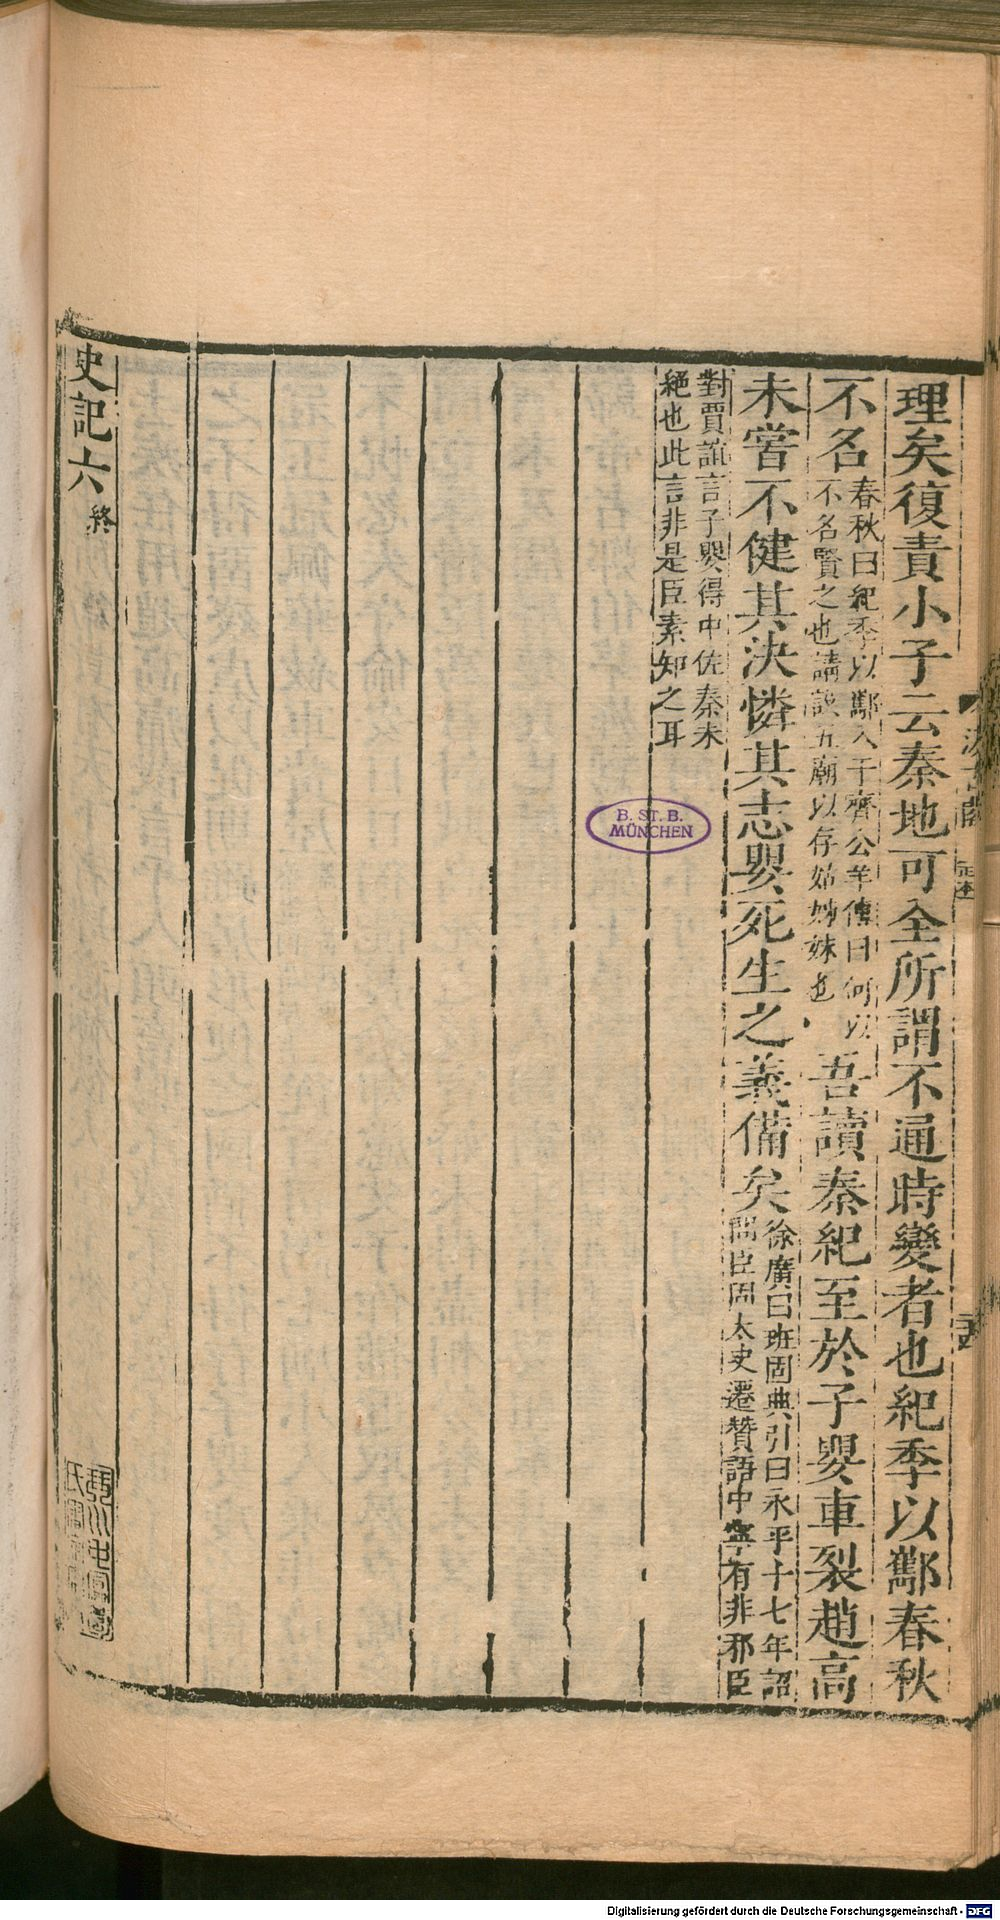 理矣復責小子云秦地可全所謂不通時變者也紀季以酅春秋
不名
春秋曰紀季以酅入于齊公羊傳曰何以
不名賢之也請設五廟以存姑姊妹也
吾讀秦紀至於子嬰車裂趙高
未嘗不健其決憐其志嬰死生之義備矣
徐廣曰班固典引曰永平十七年詔
問臣固太史遷贊語中寧有非邪臣
對賈誼言子嬰得中佐秦未
絕也此言非是臣素知之耳
史記六 終
汲古閣
正本
B. ST. B.
MÜNCHEN
Digitalisierung gefördert durch die Deutsche Forschungsgemeinschaft - DFG